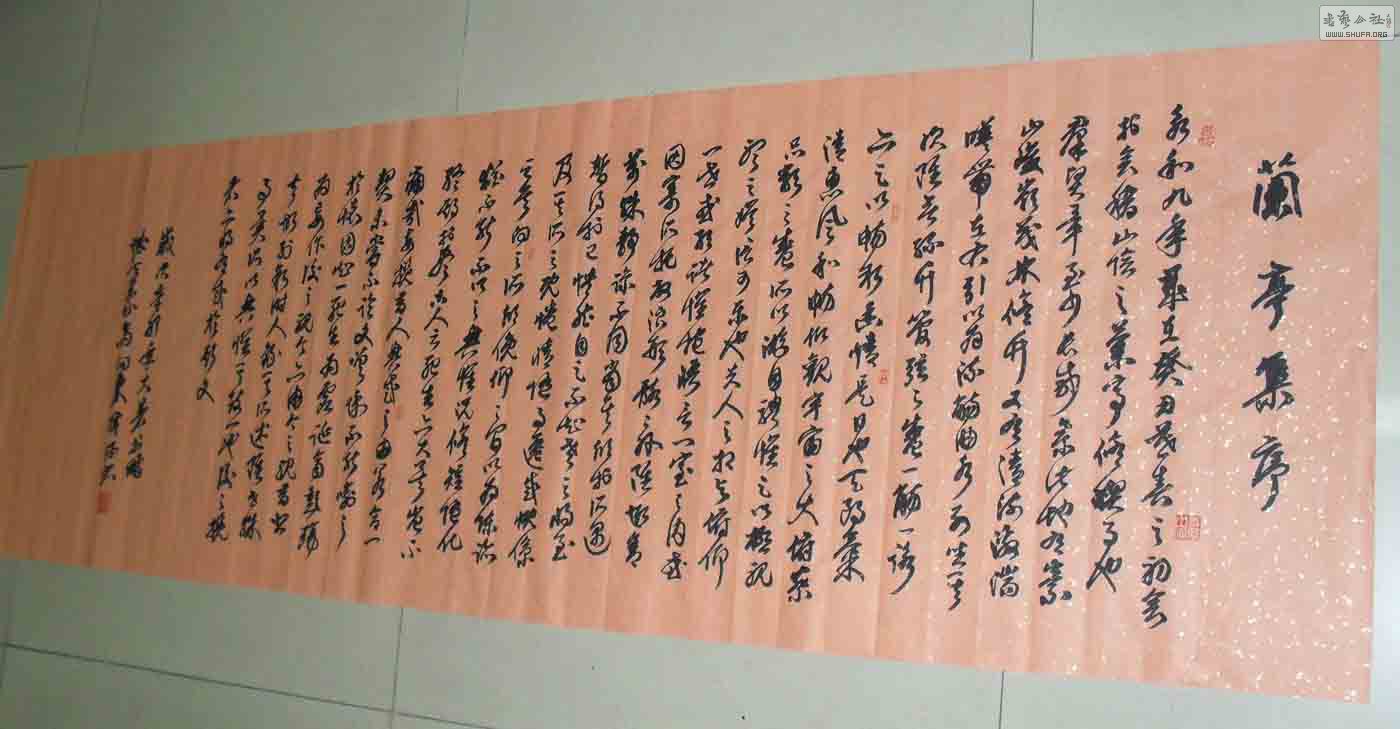 蘭亭集序
永和九年歲在癸丑暮春之初會
於會稽山陰之蘭亭修禊事也
群賢畢至少長咸集此地有崇
山峻嶺茂林修竹又有清流激湍
暎帶左右引以為流觴曲水列坐其
次雖無絲竹管弦之盛一觴一詠
亦足以暢敘幽情是日也天朗氣
清惠風和暢仰觀宇宙之大俯察
品類之盛所以游目騁懷足以極視
聽之娛信可樂也夫人之相與俯仰
一世或取諸懷抱晤言一室之內或
因寄所托放浪形骸之外雖趣舍
萬殊靜躁不同當其欣於所遇
暫得於己快然自足不知老之將至
及其所之既惓情隨事遷感慨係
之矣向之所欣俛仰之間以為陳跡
猶不能不以之興懷況修短隨化
終期於盡古人云死生亦大矣豈不
痛哉每攬昔人興感之由若合一
契未嘗不臨文嗟悼不能喻之
於懷固知一死生為虛誕齊彭殤
為妄作後之視今亦由今之視昔悲
夫故列敘時人錄其所述雖世殊
事異所以興懷其致一也後之攬
者亦將有感於斯文
歲次辛卯年大暑書
WWW.SHUFA.ORG